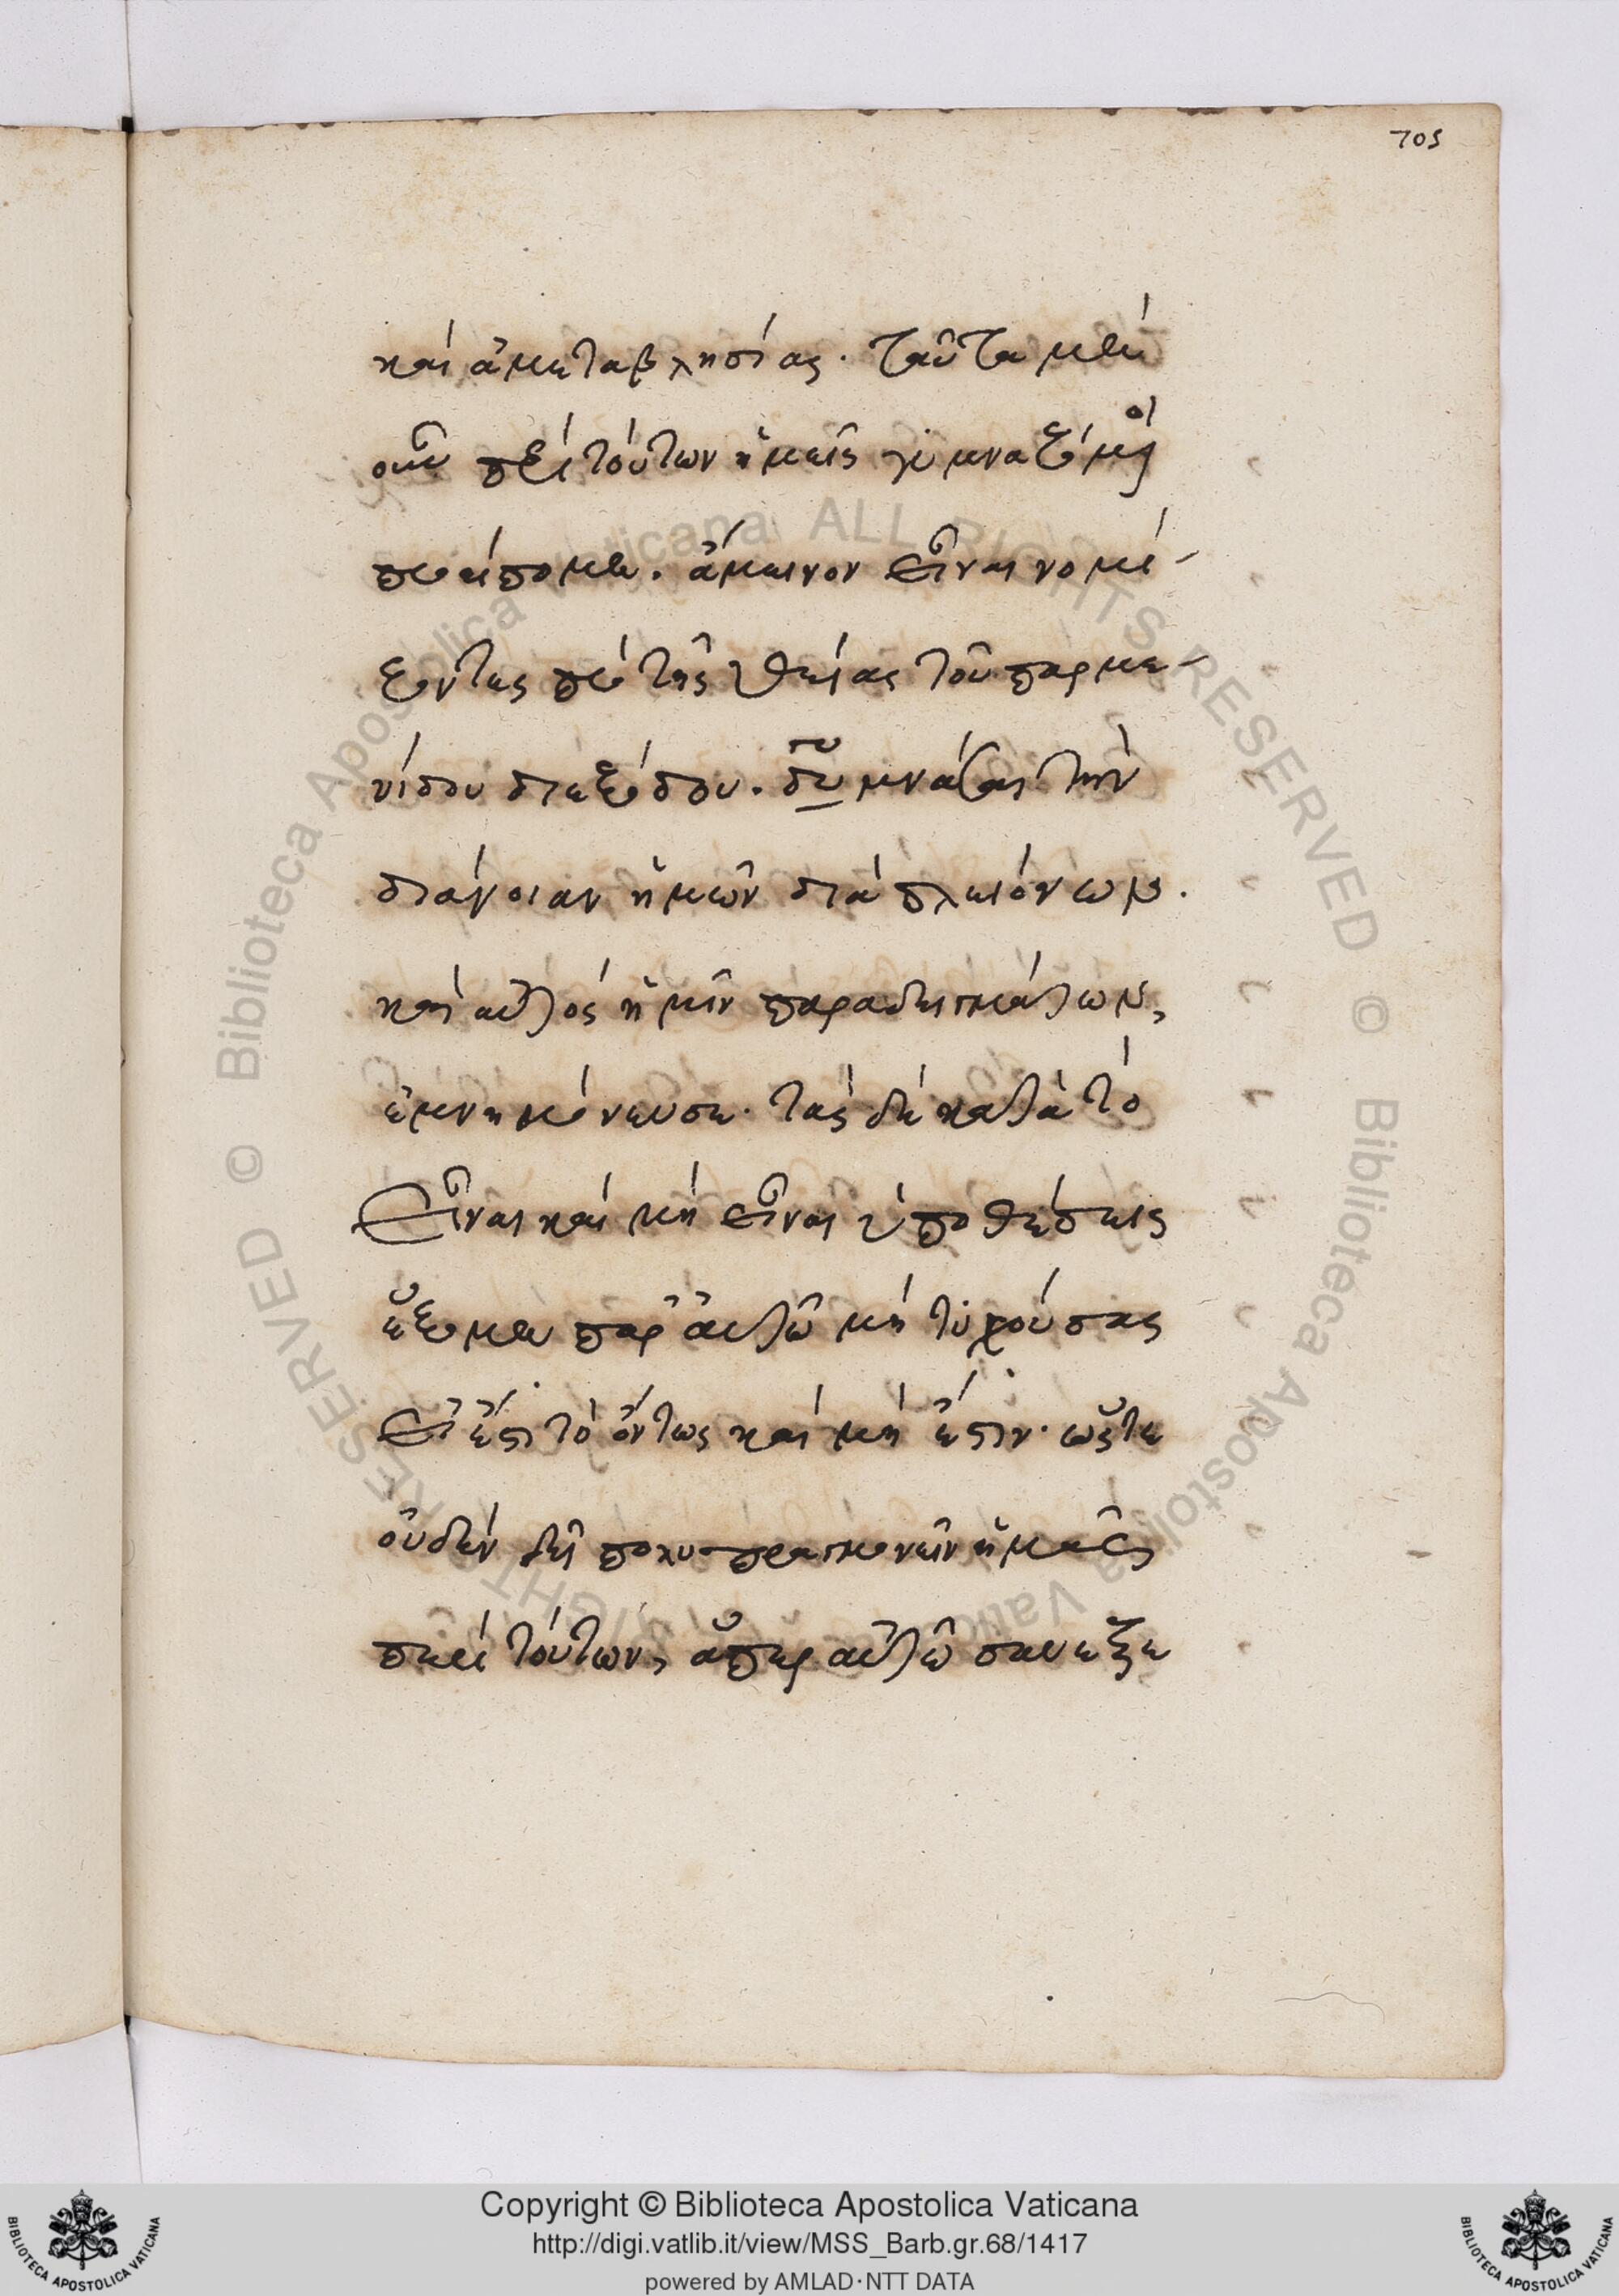 705
καὶ ἀμεταβλησίας. ταῦτα μὲν
οὖν περὶ τούτων ἡμεῖς γυμναζόμενοι
προείπομεν. ἄμεινον εἶναι νομί-
ζοντες πρὸ τῆς θείας τοῦ παρμε-
νίδου διεξόδου. γυμνάσαι τὴν
διάνοιαν ἡμῶν διὰ πλειόνων.
καὶ αὐτὸς ἡμῖν παραδειγμάτων,
ἐμνημόνευσε. τὰς δὲ κατὰ τὸ
εἶναι καὶ μὴ εἶναι ὑποθέσεις
ἕξομεν παρ' αὐτῶ μὴ τυχούσας
εἰ ἔστι τὸ ὄντως καὶ μὴ ἔστιν. ὥστε
οὐδὲν δεῖ πολυπραγμονεῖν ἡμᾶς
περὶ τούτων, ἅπερ αὐτῶ
Copyright © Biblioteca Apostolica Vaticana
http://digi.vatlib.it/view/MSS_Barb.gr.68/1417
powered by AMLAD·NTT DATA
BIBLIOTECA APOSTOLICA VATICANA
BIBLIOTECA APOSTOLICA VATICANA
© Biblioteca Apostolica Vaticana ALL RIGHTS RESERVED
© Biblioteca Apostolica Vaticana ALL RIGHTS RESERVED